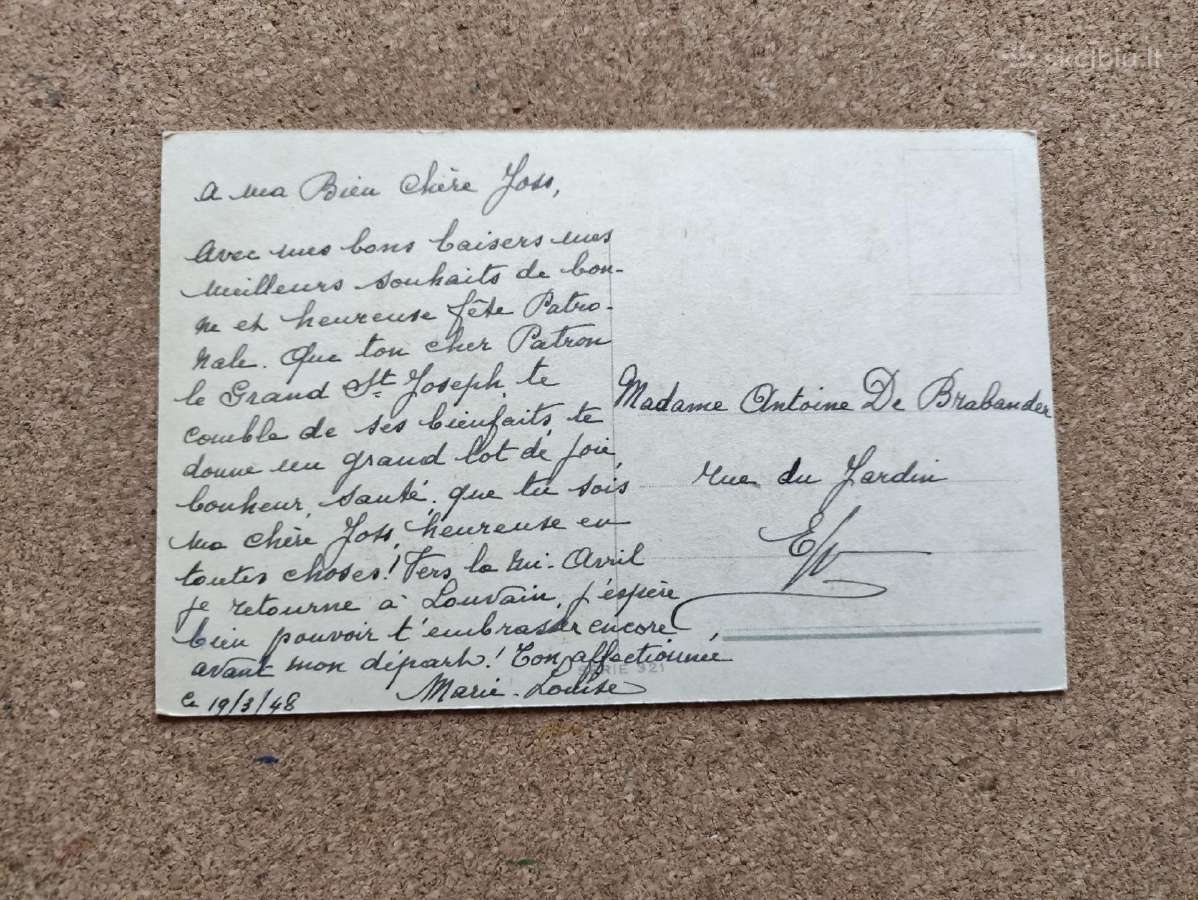 A ma Bien Chère Joss,
Avec mes bons baisers mes
meilleurs souhaits de bon-
ne et heureuse fête Patro-
nale. Que ton cher Patron
le Grand St. Joseph, te
comble de ses bienfaits, te
donne un grand lot de joie,
bonheur, santé, que tu sois
ma chère Joss, heureuse en
toutes choses! Vers la mi-Avril
je retourne à Louvain, j'espère
bien pouvoir t'embrasser encore
avant mon départ! Ton affectionnée
Marie-Louise
Ce 19/3/48
SÉRIE 321
Madame Antoine De Brabander
rue du Jardin
E/V
skelbiu.lt